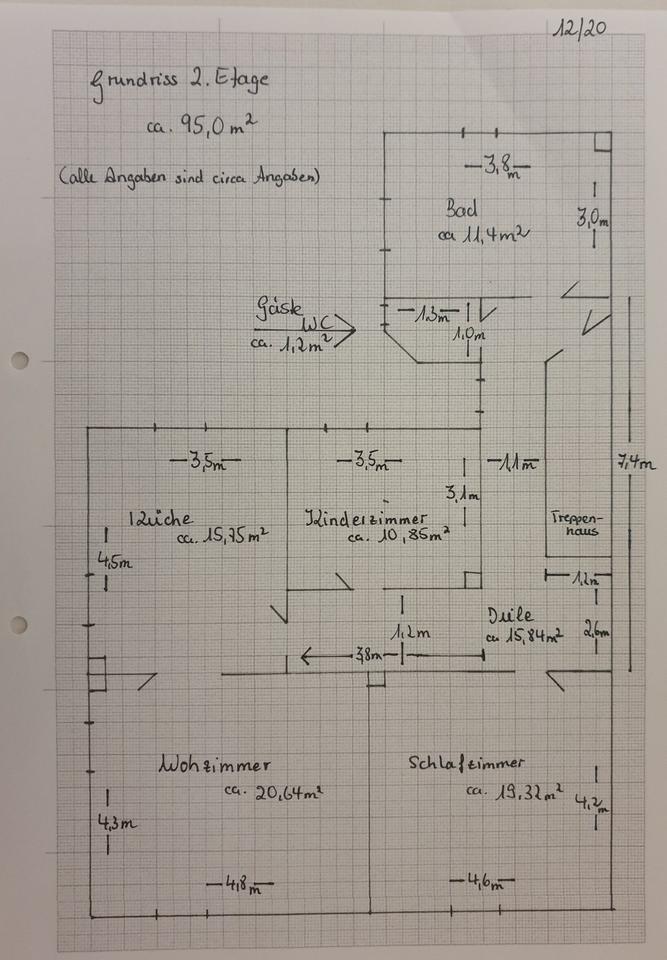 12/20
Grundriss 2. Etage
ca. 95,0 m²
(alle Angaben sind circa Angaben)
3,8 m
Bad
ca 11,4 m²
3,0 m
Gäste WC
ca. 1,2 m²
1.3 m
1,0 m
3,5 m
3,5 m
1,1 m
7,4 m
3,1 m
Küche
ca. 15,75 m²
Kinderzimmer
ca. 10,85 m²
Treppen-
haus
4,5 m
1,2 m
Diele
ca 15,84 m²
2,6 m
1,2 m
3,8 m
Wohzimmer
ca. 20,64 m²
Schlafzimmer
ca. 19,32 m²
4,3 m
4,2 m
4,8 m
4,6 m